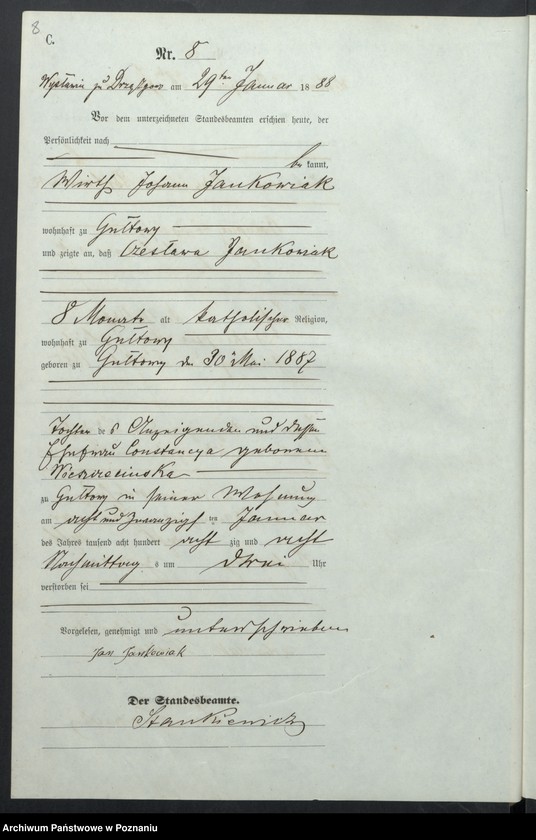 8
C.
Nr. 8
zu am 29ten Januar 1888
Vor dem unterzeichneten Standesbeamten erschien heute, der
Persönlichkeit nach
be kannt,
Wirth Johann Jankowiak
wohnhaft zu Gultowy
und zeigte an, daß Czesława Jankowiak
8 Monate alt katholischer Religion,
wohnhaft zu Gultowy
geboren zu Gultowy den 30ten Mai 1887
Tochter des Anzeigenden und dessen
Ehefrau Constancya geborenen
zu Gultowy in seiner Wohnung
am acht und zwanzigsten Januar
des Jahres tausend acht hundert acht zig und acht
Nachmittags um drei Uhr
verstorben sei
Vorgelesen, genehmigt und unterschrieben
Jan Jankowiak
Der Standesbeamte.
Stankiewicz
Archiwum Państwowe w Poznaniu